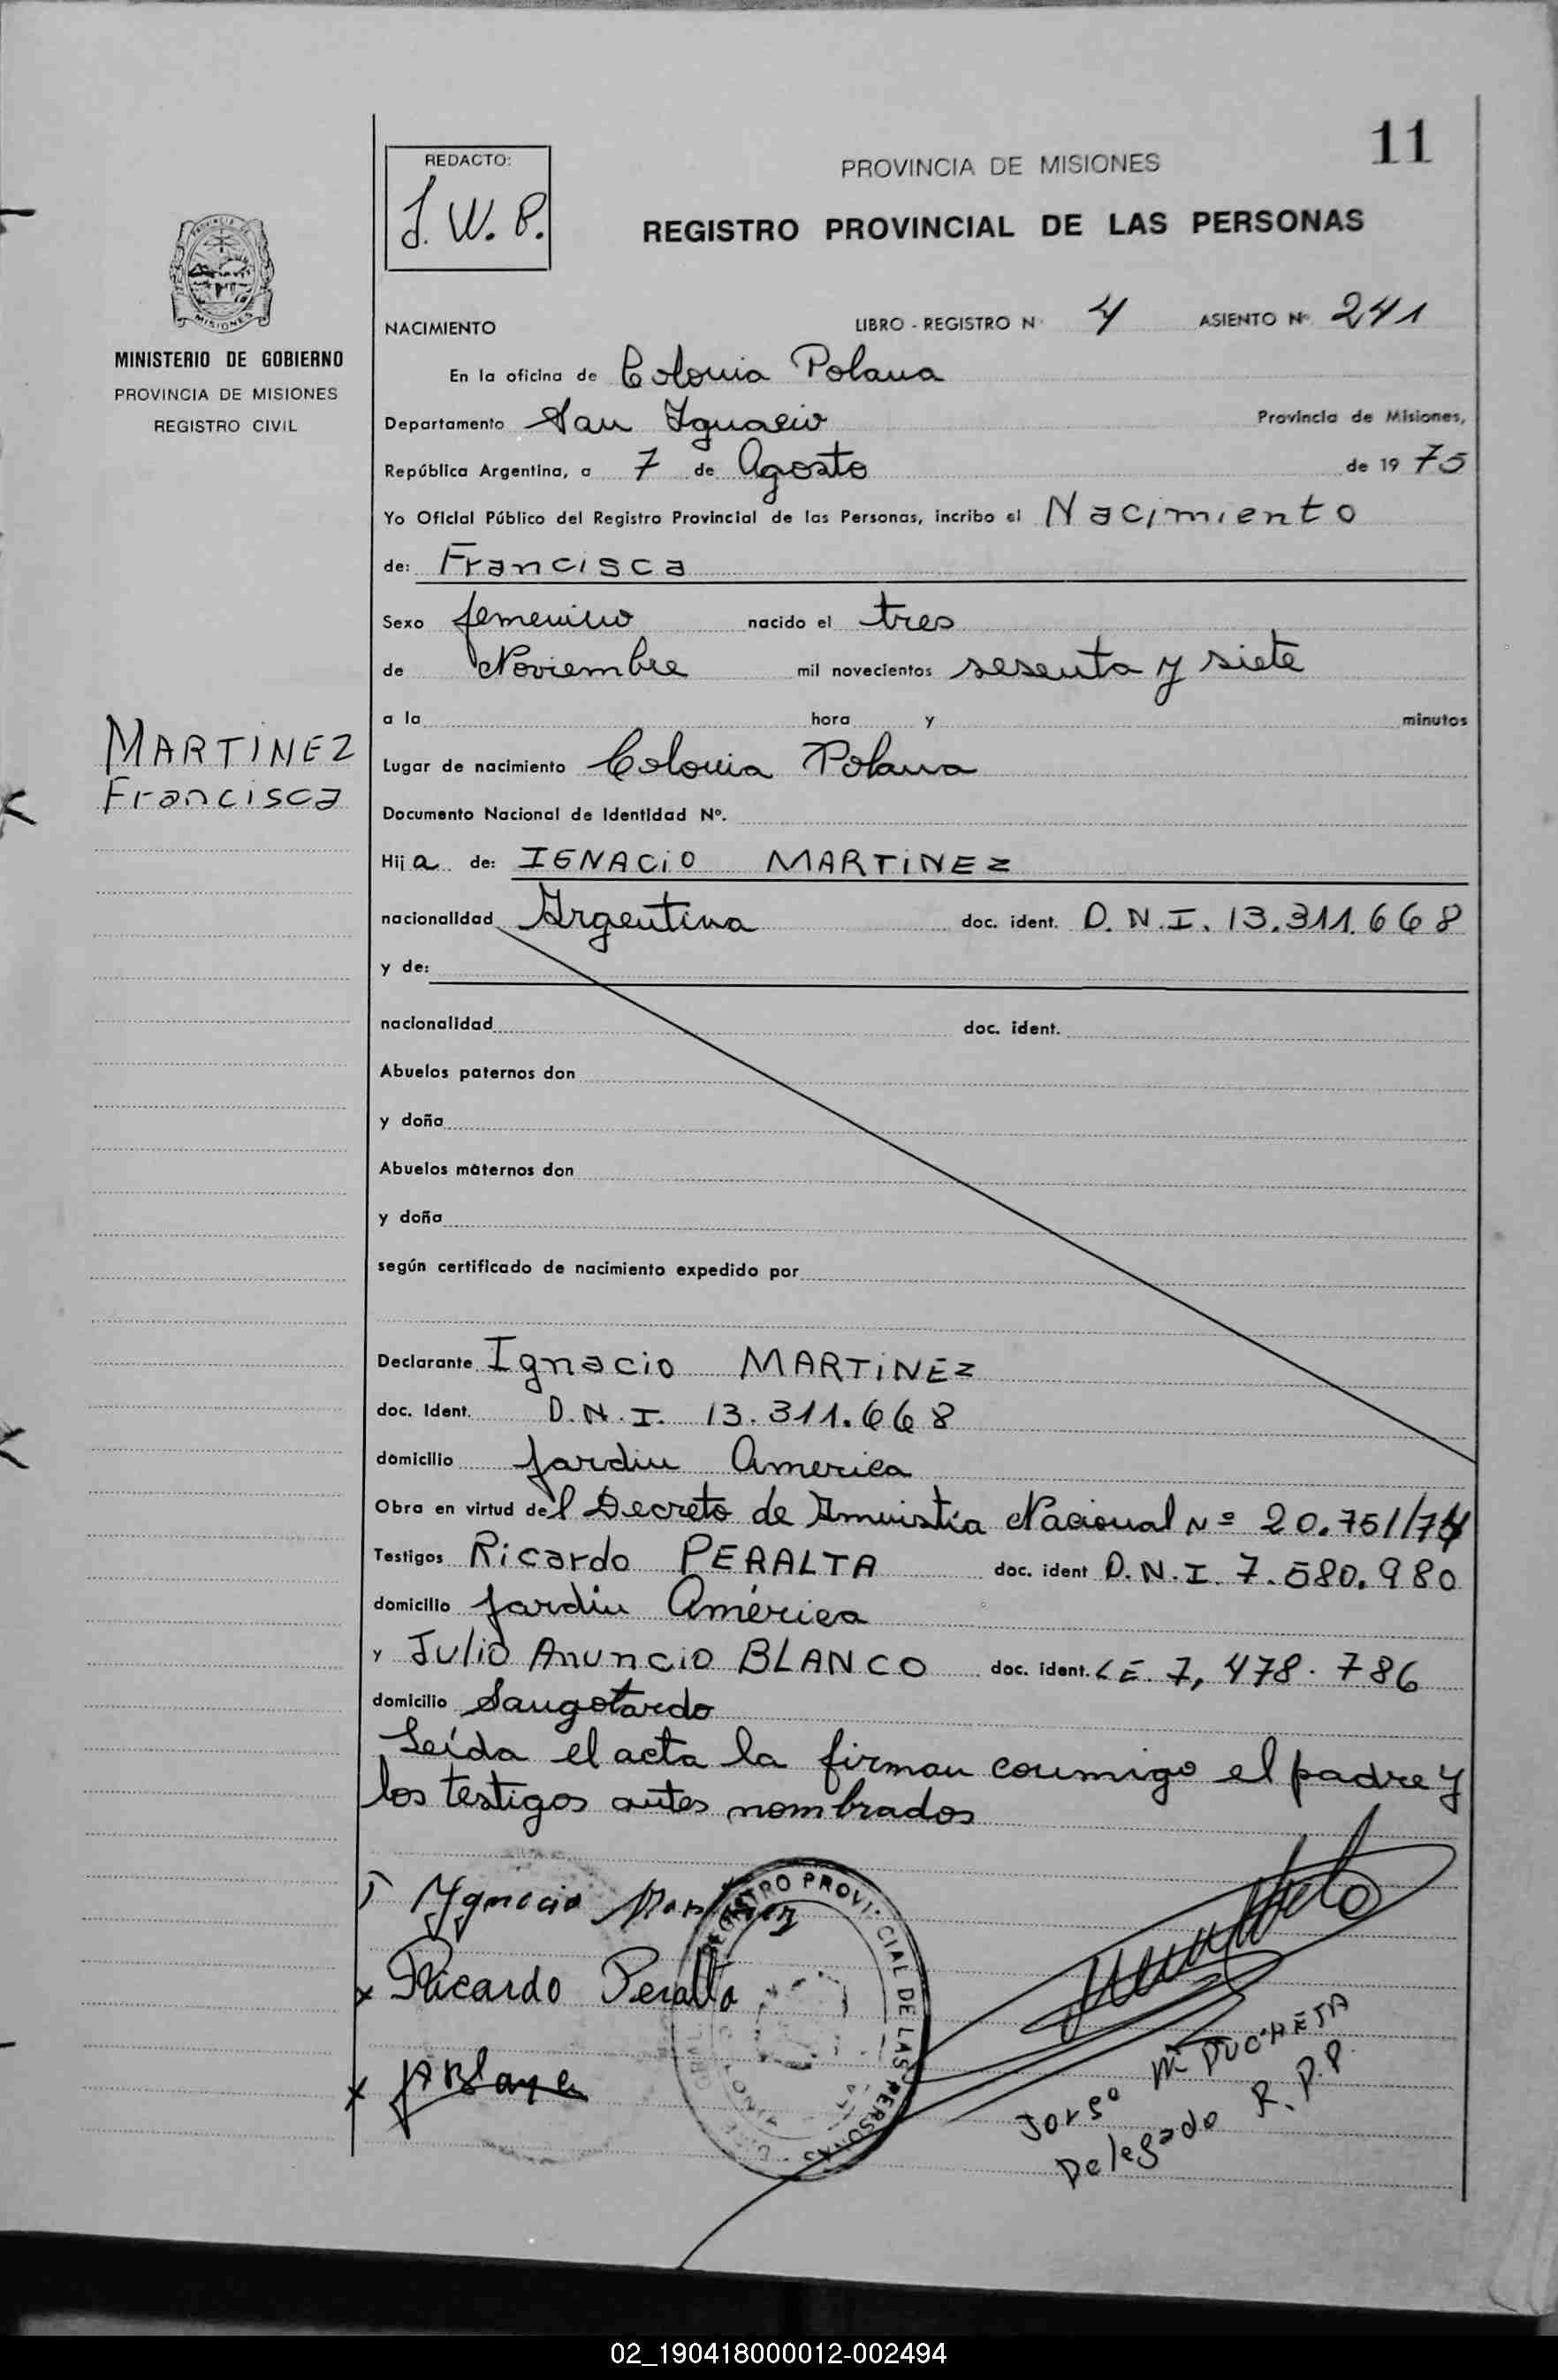 11
REDACTO:
J. W. P.
PROVINCIA DE MISIONES
REGISTRO PROVINCIAL DE LAS PERSONAS
MISIONES
MINISTERIO DE GOBIERNO
PROVINCIA DE MISIONES
REGISTRO CIVIL
NACIMIENTO LIBRO - REGISTRO N° 4 ASIENTO N° 241
En la oficina de Colonia Polana
Departamento San Ignacio Provincia de Misiones,
República Argentina, a 7 de Agosto de 19 75
Yo Oficial Público del Registro Provincial de las Personas, incribo el Nacimiento
de: Francisca
Sexo femenino nacido el tres
de Noviembre mil novecientos sesenta y siete
a la hora y minutos
MARTINEZ
Francisca
Lugar de nacimiento Colonia Polana
Documento Nacional de Identidad Nº.
Hija de: IGNACIO MARTINEZ
nacionalidad Argentina doc. ident. D.N.I. 13.311.668
y de:
nacionalidad doc. ident.
Abuelos paternos don
y doña
Abuelos maternos don
y doña
según certificado de nacimiento expedido por
Declarante Ignacio MARTINEZ
doc. Ident. D.N.I. 13.311.668
domicilio Jardin America
Obra en virtud del Decreto de Amnistía Nacional Nº 20.751/74
Testigos Ricardo PERALTA doc. ident D.N.I. 7.580.980
domicilio Jardin América
y Julio Anuncio BLANCO doc. ident. L.E. 7,478.786
domicilio Sangotardo
Leída el acta la firman conmigo el padre y
los testigos antes nombrados
Ygnacio Martinez
Ricardo Peralta
REGISTRO PROVINCIAL DE LAS PERSONAS
Jorge
Delegado R.P.P.
02_190418000012-002494